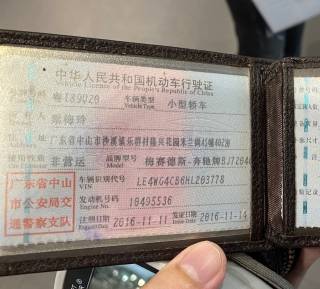 中华人民共和国机动车行驶证
Vehicle License of the People's Republic of China
号牌号码 车辆类型 小型轿车
Vehicle Type
陈梅玲
广东省中山市沙溪镇乐群村隆兴花园米兰阁
使用性质 非营运 品牌型号 梅赛德斯-奔驰牌
Model
广东省中山 车辆识别代号 LE4WG4CB6HL203778
VIN
市公安局交 发动机号码 10495536
Engine No.
通警察支队 注册日期 2016-11-11 发证日期 2016-11-14
Register Date Issue Date